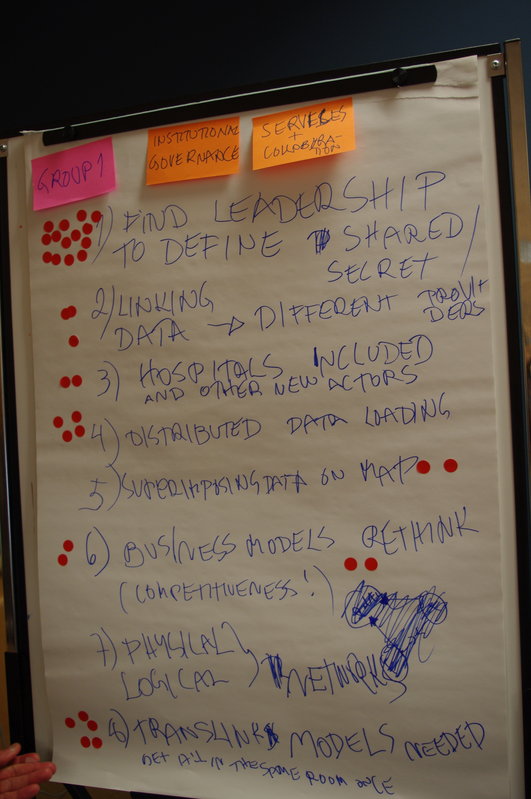 GROUP 1
INSTITUTIONAL
GOVERNANCE
SERVICES
+
COLLABORA-
TION
1) FIND LEADERSHIP
TO DEFINE SHARED/
SECRET
2) LINKING
DATA → DIFFERENT PROVI
DERS
3) HOSPITALS INCLUDED
AND OTHER NEW ACTORS
4) DISTRIBUTED DATA LOADING
5) SUPERIMPOSING DATA ON MAP
6) BUSINESS MODELS RETHINK
(COMPETITIVENESS!)
7) PHYSICAL
LOGICAL } NETWORKS
8) TRANSLINK MODELS NEEDED
GET ALL IN THE SAME ROOM ONCE